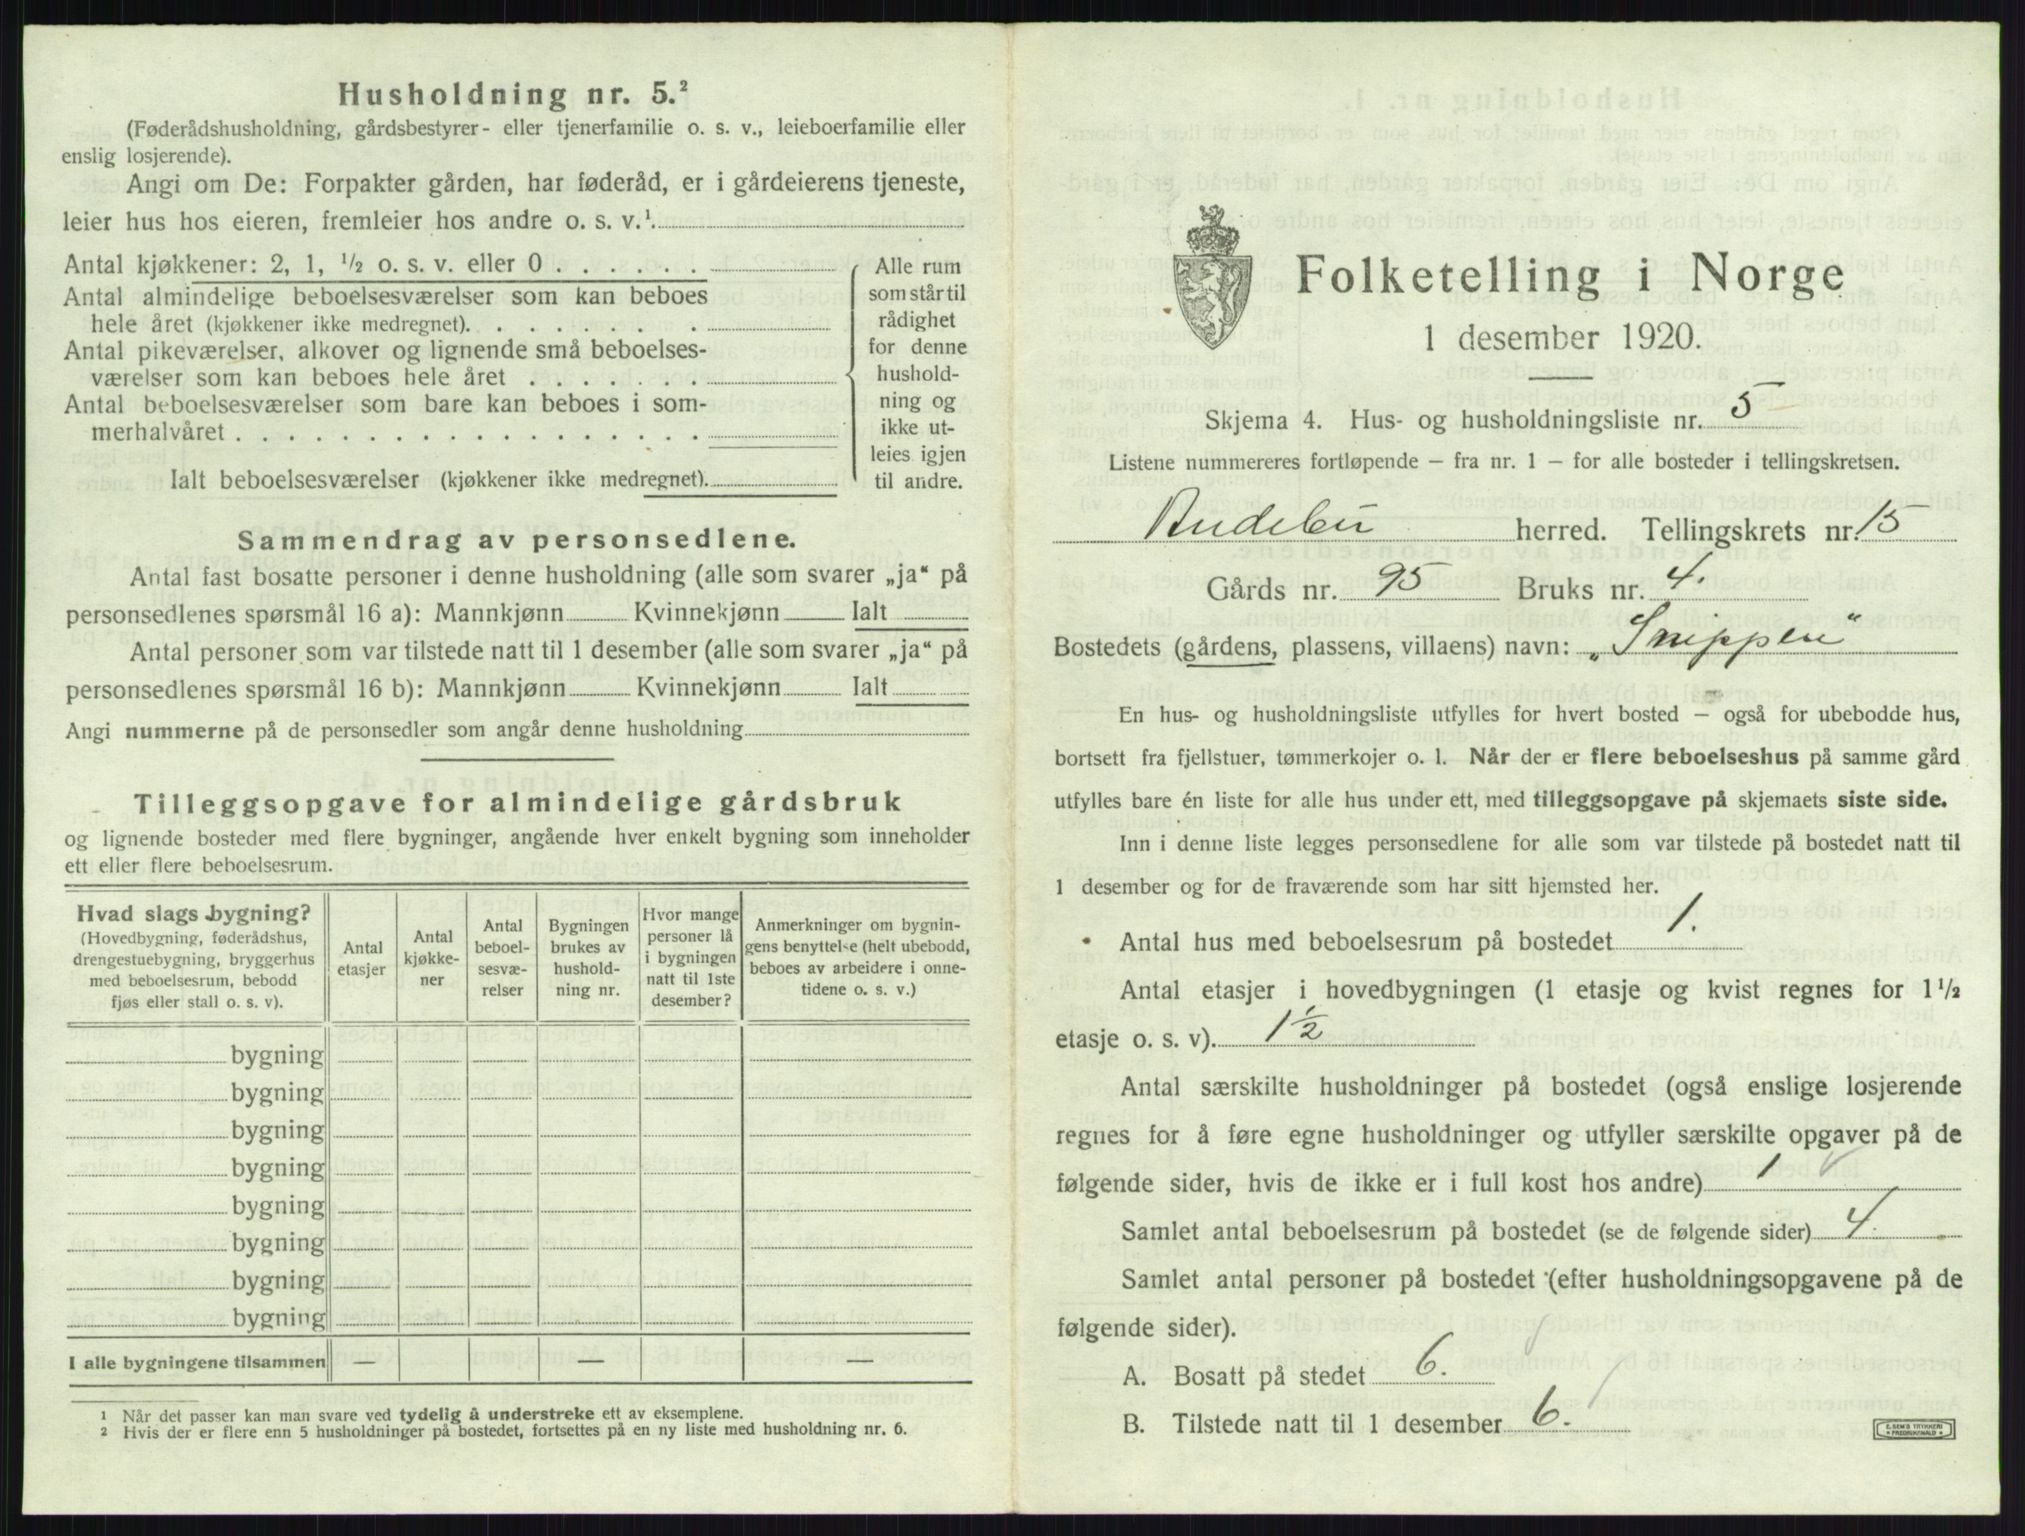 Husholdning nr. 5.²
(Føderådshusholdning, gårdsbestyrer- eller tjenerfamilie o. s. v., leieboerfamilie eller
enslig losjerende).
Angi om De: Forpakter gården, har føderåd, er i gårdeierens tjeneste,
leier hus hos eieren, fremleier hos andre o. s. v.¹
Antal kjøkkener: 2, 1, ½ o. s. v. eller 0 . . . . . .
Antal almindelige beboelsesværelser som kan beboes
hele året (kjøkkener ikke medregnet). . . . . . . .
Antal pikeværelser, alkover og lignende små beboelses-
værelser som kan beboes hele året . . . . . . .
Antal beboelsesværelser som bare kan beboes i som-
merhalvåret . . . . . . . . . . . . . . . . .
Ialt beboelsesværelser (kjøkkener ikke medregnet).
Alle rum
som står til
rådighet
for denne
hushold-
ning og
ikke ut-
leies igjen
til andre.
Sammendrag av personsedlene.
Antal fast bosatte personer i denne husholdning (alle som svarer „ja“ på
personsedlenes spørsmål 16 a): Mannkjønn Kvinnekjønn Ialt
Antal personer som var tilstede natt til 1 desember (alle som svarer „ja“ på
personsedlenes spørsmål 16 b): Mannkjønn Kvinnekjønn Ialt
Angi nummerne på de personsedler som angår denne husholdning
Tilleggsopgave for almindelige gårdsbruk
og lignende bosteder med flere bygninger, angående hver enkelt bygning som inneholder
ett eller flere beboelsesrum.
Hvad slags bygning?
(Hovedbygning, føderådshus,
drengestuebygning, bryggerhus
med beboelsesrum, bebodd
fjøs eller stall o. s. v).
Antal
etasjer
Antal
kjøkke-
ner
Antal
beboel-
sesvæ-
relser
Bygningen
brukes av
hushold-
ning nr.
Hvor mange
personer lå
i bygningen
natt til 1ste
desember?
Anmerkninger om bygnin-
gens benyttelse (helt ubebodd,
beboes av arbeidere i onne-
tidene o. s. v.)
bygning
bygning
bygning
bygning
bygning
bygning
bygning
bygning
I alle bygningene tilsammen — — —
¹ Når det passer kan man svare ved tydelig å understreke ett av eksemplene.
² Hvis der er flere enn 5 husholdninger på bostedet, fortsettes på en ny liste med husholdning nr. 6.
Folketelling i Norge
1 desember 1920.
Skjema 4. Hus- og husholdningsliste nr. 5
Listene nummereres fortløpende – fra nr. 1 – for alle bosteder i tellingskretsen.
Andebu herred. Tellingskrets nr. 15
Gårds nr. 95 Bruks nr. 4.
Bostedets (gårdens, plassens, villaens) navn: „Snippen“
En hus- og husholdningsliste utfylles for hvert bosted – også for ubebodde hus,
bortsett fra fjellstuer, tømmerkojer o. l. Når der er flere beboelseshus på samme gård
utfylles bare én liste for alle hus under ett, med tilleggsopgave på skjemaets siste side.
Inn i denne liste legges personsedlene for alle som var tilstede på bostedet natt til
1 desember og for de fraværende som har sitt hjemsted her.
Antal hus med beboelsesrum på bostedet 1.
Antal etasjer i hovedbygningen (1 etasje og kvist regnes for 1½
etasje o. s. v). 1½
Antal særskilte husholdninger på bostedet (også enslige losjerende
regnes for å føre egne husholdninger og utfyller særskilte opgaver på de
følgende sider, hvis de ikke er i full kost hos andre) 1
Samlet antal beboelsesrum på bostedet (se de følgende sider) 4.
Samlet antal personer på bostedet (efter husholdningsopgavene på de
følgende sider).
A. Bosatt på stedet 6.
B. Tilstede natt til 1 desember 6.
E. SEM'S TRYKKERI
FREDRIKSHALD